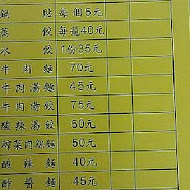 鍋貼 每個5元
蒸餃 每籠40元
水餃 1份35元
牛肉麵 70元
牛肉湯麵 45元
牛肉湯餃 75元
酸辣湯餃 50元
榨菜肉絲麵 50元
酸辣麵 40元
炸醬麵 45元